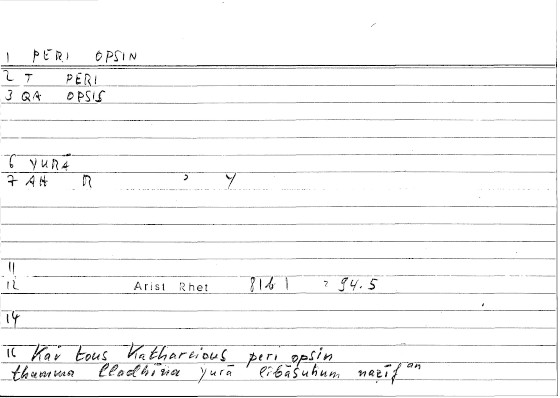 1 PERI OPSIN
2 T PERI
3 QA OPSIS
6 YURĀ
7 AH R ' Y
11
12 Arist Rhet 81b1 94.5
14
16 Kai tous Kathareious peri opsin
thumma lladhīna yurā libāsuhum naẓīf an